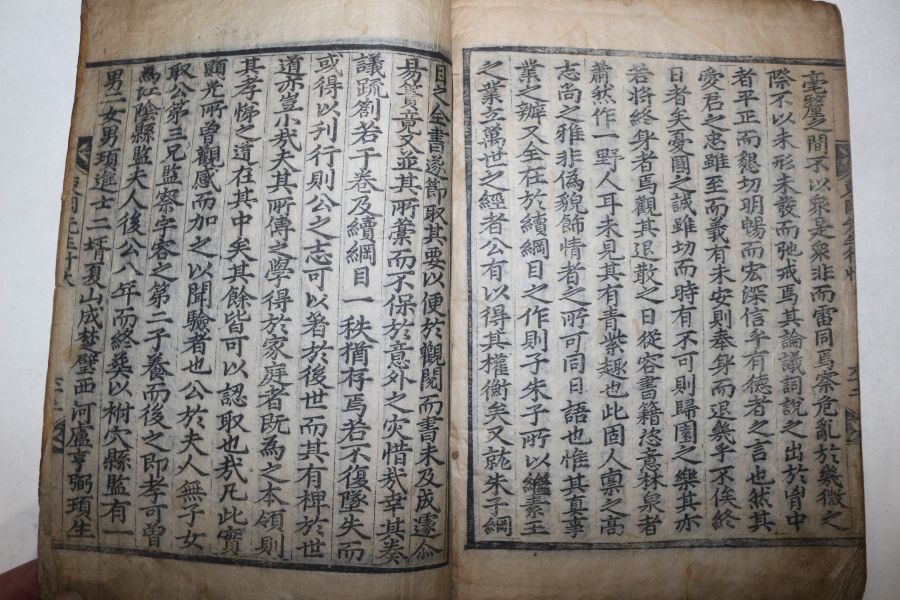 毫釐之間不以衆是衆非而雷同焉察危亂於幾微之
際不以未形未發而弛戒焉其論議詞說之出於胷中
者平正而懇切明暢而宏深信乎有德者之言也然其
愛君之忠雖至而義有未安則奉身而退幾乎不俟終
日者矣憂國之誠雖切而時有不可則歸園之樂其亦
若將終身者焉觀其退散之日從容書籍恣意林泉者
蕭然作一野人耳未見其有青紫趣也此固人禀之高
志尚之雅非偽貌飾情者之所可同日語也惟其眞事
業之辦又全在於續綱目之作則子朱子所以繼素王
之業立萬世之經者公有以得其權衡矣又就朱子綱
目之全書遂節取其要以便於觀閱而書未及成遽爾
易簀竟又並其所藁而不保於意外之灾惜哉幸其奏
議疏劄若干卷及續綱目一秩猶存焉若不復墜失而
或得以刋行則公之志可以著於後世而其有裨於世
道亦豈小哉夫其所傳之學得於家庭者旣爲之本領則
其孝悌之道在其中矣其餘皆可以認取也哉凡此實
顯光所曽觀感而加之以聞驗者也公於夫人無子女
取公第三兄監察宇容之第二子養而後之即孝可曽
爲江陰縣監夫人後公八年而終葬以祔穴縣監有
男二女男頊進士二壻夏山成埜璧西河盧亨弼頊生